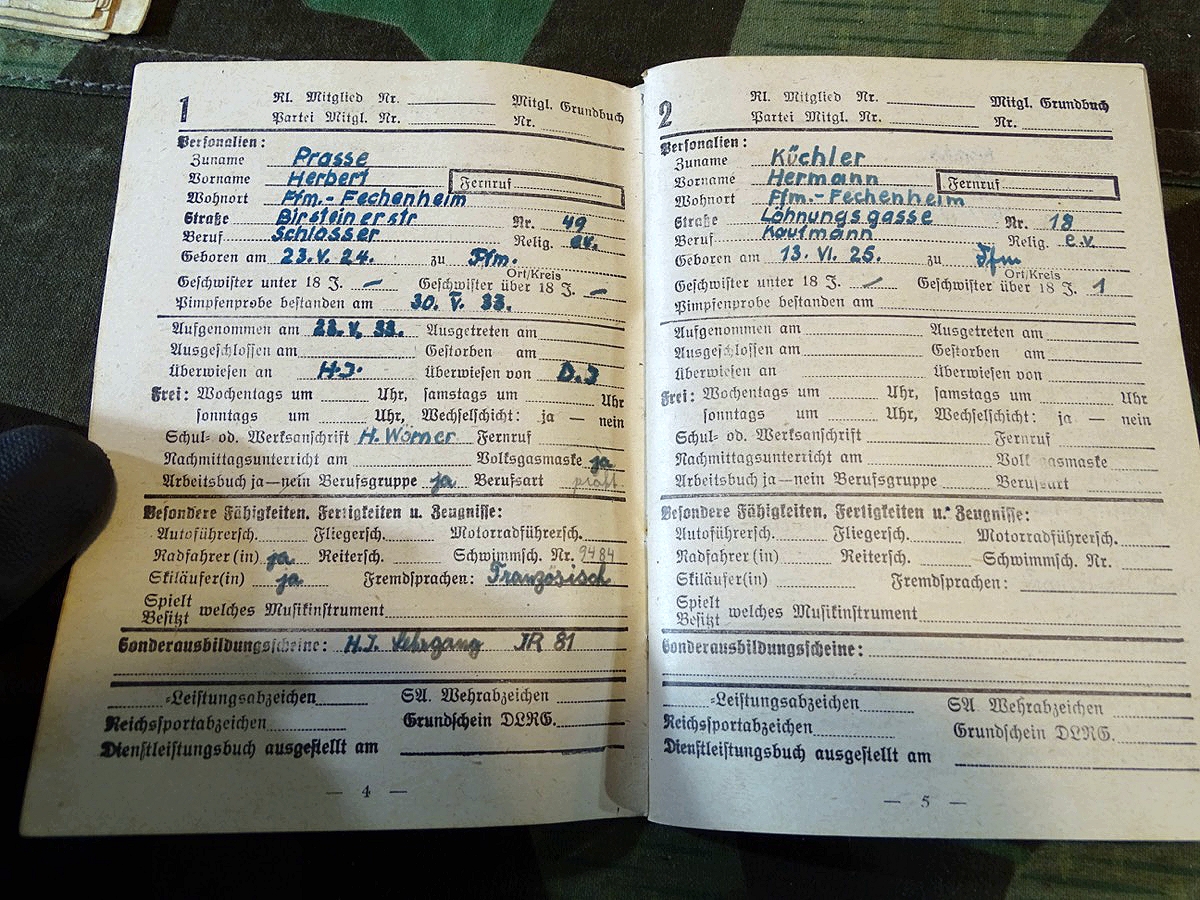 1
Rl. Mitglied Nr. Mitgl. Grundbuch
Partei Mitgl. Nr. Nr.
Personalien:
Zuname Prasse
Vorname Herbert Fernruf
Wohnort Ffm.-Fechenheim
Straße Birsteinerstr Nr. 49
Beruf Schlosser Relig. ev.
Geboren am 23.V.24. zu Ffm.
Ort/Kreis
Geschwister unter 18 J. — Geschwister über 18 J. —
Pimpfenprobe bestanden am 30. V. 33.
Aufgenommen am 23.V.33. Ausgetreten am
Ausgeschlossen am Gestorben am
Überwiesen an H.J. Überwiesen von D.J
Frei: Wochentags um Uhr, samstags um Uhr
sonntags um Uhr, Wechselschicht: ja — nein
Schul- od. Werksanschrift H. Wörner Fernruf
Nachmittagsunterricht am Volksgasmaske ja
Arbeitsbuch ja—nein Berufsgruppe ja Berufsart
Besondere Fähigkeiten, Fertigkeiten u. Zeugnisse:
Autoführersch. Fliegersch. Motorradführersch.
Radfahrer(in) ja Reitersch. Schwimmsch. Nr. 9484
Skiläufer(in) ja Fremdsprachen: Französisch
Spielt
Besitzt welches Musikinstrument
Sonderausbildungsscheine: H.J. Lehrgang JR 81
-Leistungsabzeichen SA. Wehrabzeichen
Reichssportabzeichen Grundschein DLRG.
Dienstleistungsbuch ausgestellt am
— 4 —
2
Rl. Mitglied Nr. Mitgl. Grundbuch
Partei Mitgl. Nr. Nr.
Personalien:
Zuname Küchler
Vorname Hermann Fernruf
Wohnort Ffm.-Fechenheim
Straße Löhnungsgasse Nr. 18
Beruf Kaufmann Relig. e.v.
Geboren am 13. VI. 25. zu Ffm
Ort/Kreis
Geschwister unter 18 J. — Geschwister über 18 J. 1
Pimpfenprobe bestanden am
Aufgenommen am Ausgetreten am
Ausgeschlossen am Gestorben am
Überwiesen an Überwiesen von
Frei: Wochentags um Uhr, samstags um Uhr
sonntags um Uhr, Wechselschicht: ja — nein
Schul- od. Werksanschrift Fernruf
Nachmittagsunterricht am Volksgasmaske
Arbeitsbuch ja—nein Berufsgruppe Berufsart
Besondere Fähigkeiten, Fertigkeiten u. Zeugnisse:
Autoführersch. Fliegersch. Motorradführersch.
Radfahrer(in) Reitersch. Schwimmsch. Nr.
Skiläufer(in) Fremdsprachen:
Spielt
Besitzt welches Musikinstrument
Sonderausbildungsscheine:
-Leistungsabzeichen SA Wehrabzeichen
Reichssportabzeichen Grundschein DLRG.
Dienstleistungsbuch ausgestellt am
— 5 —